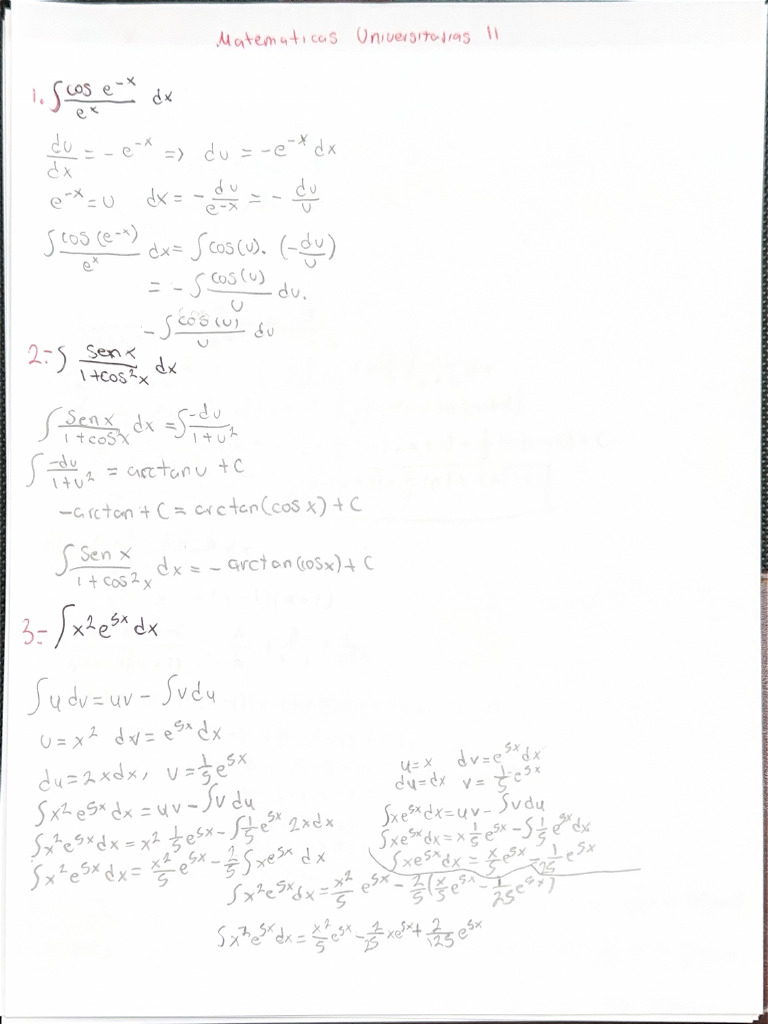 Matematicas Universitarias II
1. ∫ cos e^-x / e^x dx
du/dx = - e^-x => du = -e^-x dx
e^-x = u dx = - du/e^-x = - du/u
∫ cos (e^-x) / e^x dx = ∫ cos(u). (- du/u)
= - ∫ cos(u) / u du.
- ∫ cos(u) / u du
2- ∫ Sen x / 1+cos²x dx
∫ Sen x / 1+cos²x dx = ∫ -du / 1+u²
∫ -du / 1+u² = arctan u + C
-arctan + C = arctan(cos x) + C
∫ Sen x / 1+cos²x dx = - arctan(cosx) + C
3- ∫ x² e^5x dx
∫ u dv = uv - ∫ v du
u = x² dv = e^5x dx
du = 2x dx, v = 1/5 e^5x
∫ x² e^5x dx = uv - ∫ v du
∫ x² e^5x dx = x² 1/5 e^5x - ∫ 1/5 e^5x 2x dx
∫ x² e^5x dx = x²/5 e^5x - 2/5 ∫ x e^5x dx
u = x dv = e^5x dx
du = dx v = 1/5 e^5x
∫ x e^5x dx = uv - ∫ v du
∫ x e^5x dx = x 1/5 e^5x - ∫ 1/5 e^5x dx
∫ x e^5x dx = x/5 e^5x - 1/25 e^5x
∫ x² e^5x dx = x²/5 e^5x - 2/5 (x/5 e^5x - 1/25 e^5x)
∫ x² e^5x dx = x²/5 e^5x - 2/25 x e^5x + 2/125 e^5x